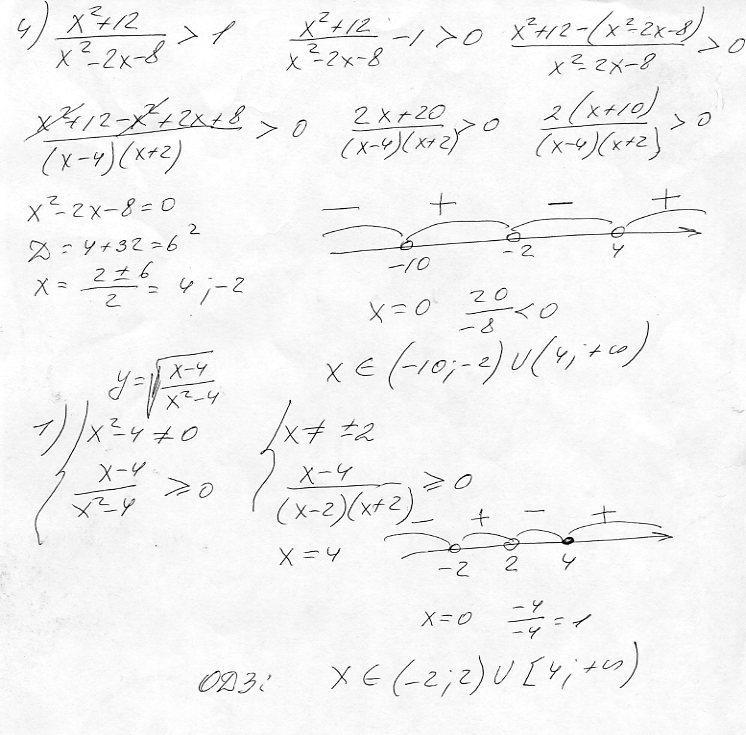 4) (x²+12)/(x²-2x-8) > 1   (x²+12)/(x²-2x-8) - 1 > 0   (x²+12-(x²-2x-8))/(x²-2x-8) > 0
(x²+12-x²+2x+8)/((x-4)(x+2)) > 0   (2x+20)/((x-4)(x+2)) > 0   2(x+10)/((x-4)(x+2)) > 0
x²-2x-8=0
D = 4+32 = 6²
x = (2±6)/2 = 4; -2
− + − +
-10 -2 4
x=0   20/-8 < 0
x ∈ (-10;-2) ∪ (4;+∞)
y = √((x-4)/(x²-4))
1) { x²-4 ≠ 0   { x ≠ ±2
(x-4)/(x²-4) ≥ 0   (x-4)/((x-2)(x+2)) ≥ 0
x=4
− + − +
-2 2 4
x=0   -4/-4 = 1
ОДЗ:   x ∈ (-2;2) ∪ [4;+∞)